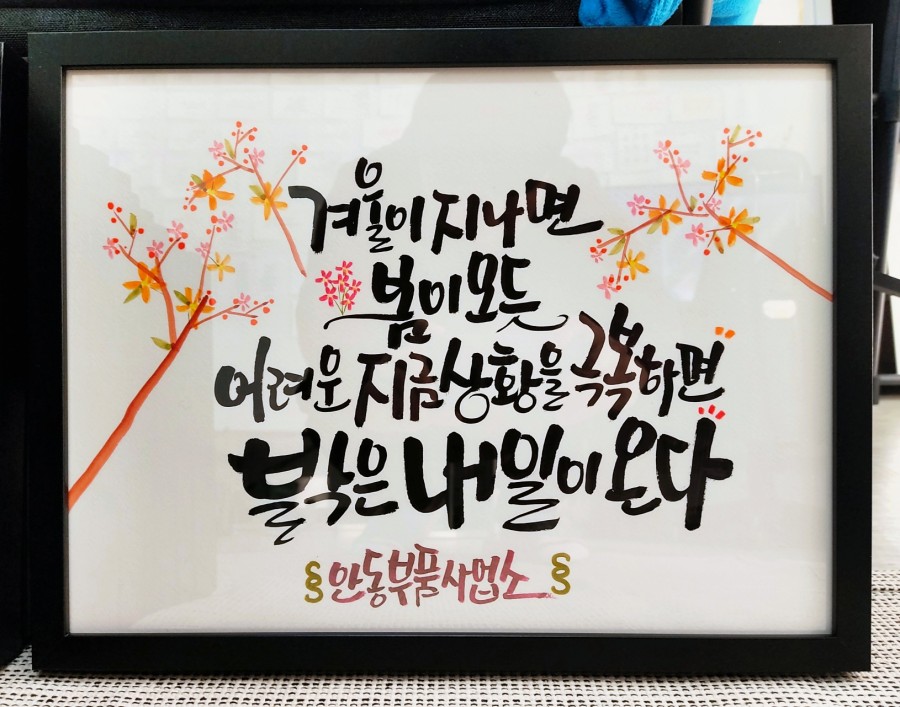 겨울이 지나면
봄이 오듯
어려운 지금 상황을 극복하면
밝은 내일이 온다
§안동부품사업소§